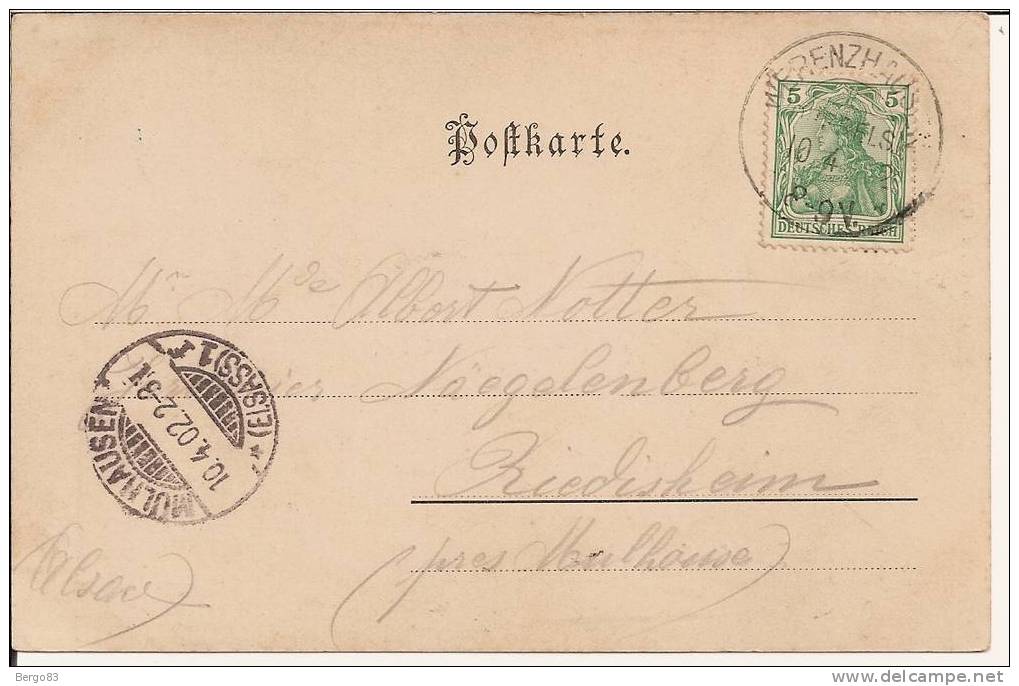 Postkarte.
5 5
DEUTSCHES REICH
WERENZHAUSEN
10 4 02
8-9V.
Mr Mde Albert Notter
Nägelenberg
Riedisheim
(près Mulhouse)
(Alsace)
MÜLHAUSEN
10.4.02.2-3N
*(ELSASS)1 f
Bergo83
www.delcampe.net